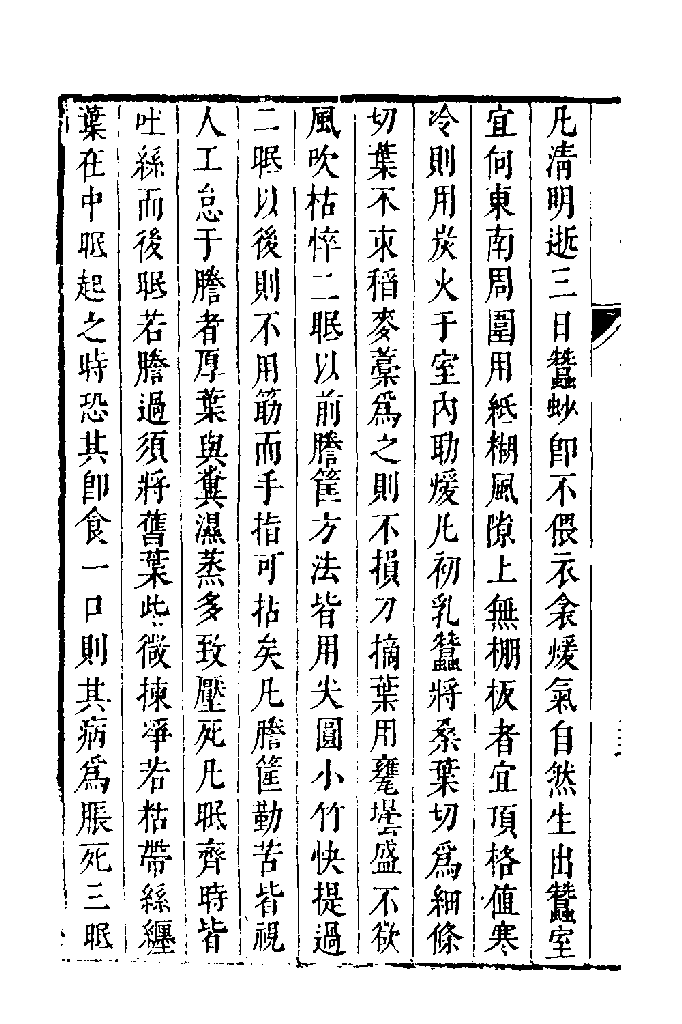 凡清明逝三日蠶𧉀卽不偎衣衾煖氣自然生出蠶室
宜向東南周圍用紙糊風隙上無棚板者宜頂格值寒
冷則用炭火于室內助煖凡初乳蠶將桑葉切爲細條
切葉不束稻麥藁爲之則不損刀摘葉用甕壜盛不欲
風吹枯悴二眠以前謄筐方法皆用尖圓小竹快提過
二眠以後則不用筯而手指可拈矣凡謄筐勤苦皆視
人工怠于謄者厚葉與糞濕蒸多致壓死凡眠齊時皆
吐絲而後眠若謄過須將舊葉些微揀淨若粘帶絲纏
葉在中眠起之時恐其卽食一口則其病爲脹死三眠